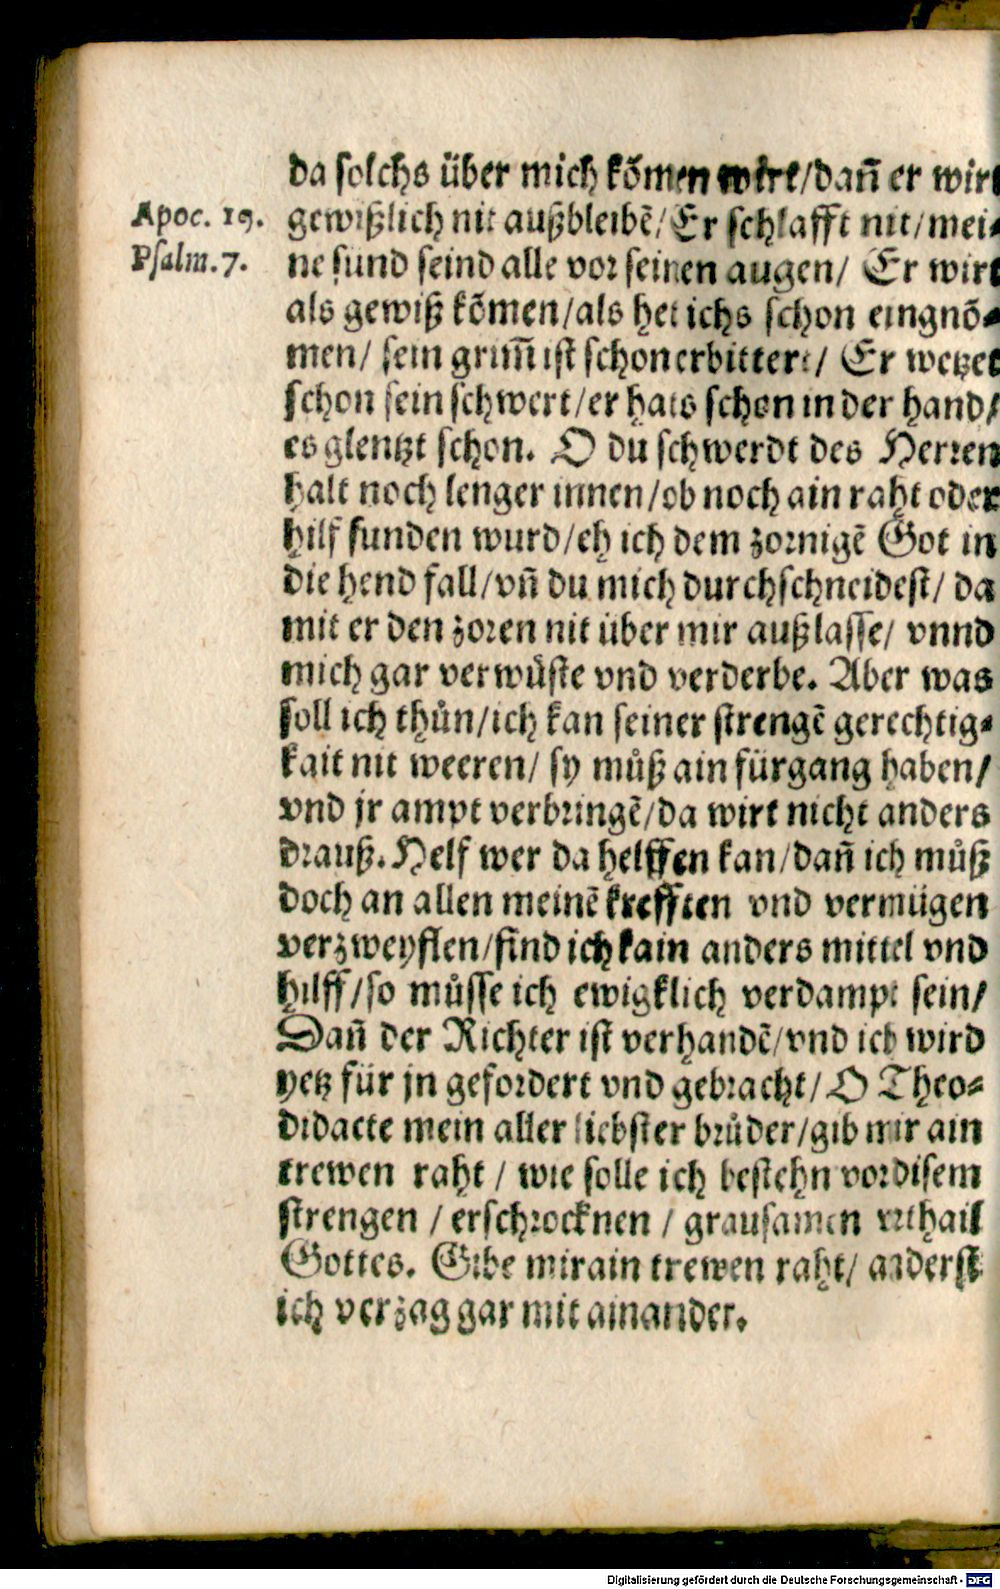 da solchs über mich kõmen wirt/dañ er wirt
Apoc. 19.
gewißlich nit außbleibẽ/Er schlafft nit/mei⸗
Psalm. 7.
ne sünd seind alle vor seinen augen/ Er wirt
als gewiß kõmen/als het ichs schon eingnõ⸗
men/ sein grim̃ ist schon erbittert/ Er wetzet
schon sein schwert/er hats schon in der hand/
es glentzt schon. O du schwerdt des Herren
halt noch lenger innen/ob noch ain raht oder
hilf funden wurd/eh ich dem zornigẽ Got in
die hend fall/vñ du mich durchschneidest/ da
mit er den zoren nit über mir außlasse/ vnnd
mich gar verwuͤste vnd verderbe. Aber was
soll ich thuͦn/ich kan seiner strengẽ gerechtig⸗
kait nit weeren/ sy muͦß ain fürgang haben/
vnd jr ampt verbringẽ/da wirt nicht anders
drauß. Helf wer da helffen kan/dañ ich muͦß
doch an allen meinẽ krefften vnd vermügen
verzweyflen/find ich kain anders mittel vnd
hilff/so muͤsse ich ewigklich verdampt sein/
Dañ der Richter ist verhandẽ/vnd ich wird
yetz für jn gefordert vnd gebracht/ O Theo⸗
didacte mein aller liebster bruͦder/gib mir ain
trewen raht / wie solle ich bestehn vor disem
strengen / erschrocknen / grausamen vrthail
Gottes. Gibe mir ain trewen raht/ anderst
ich verzag gar mit ainander.
Digitalisierung gefördert durch die Deutsche Forschungsgemeinschaft - DFG